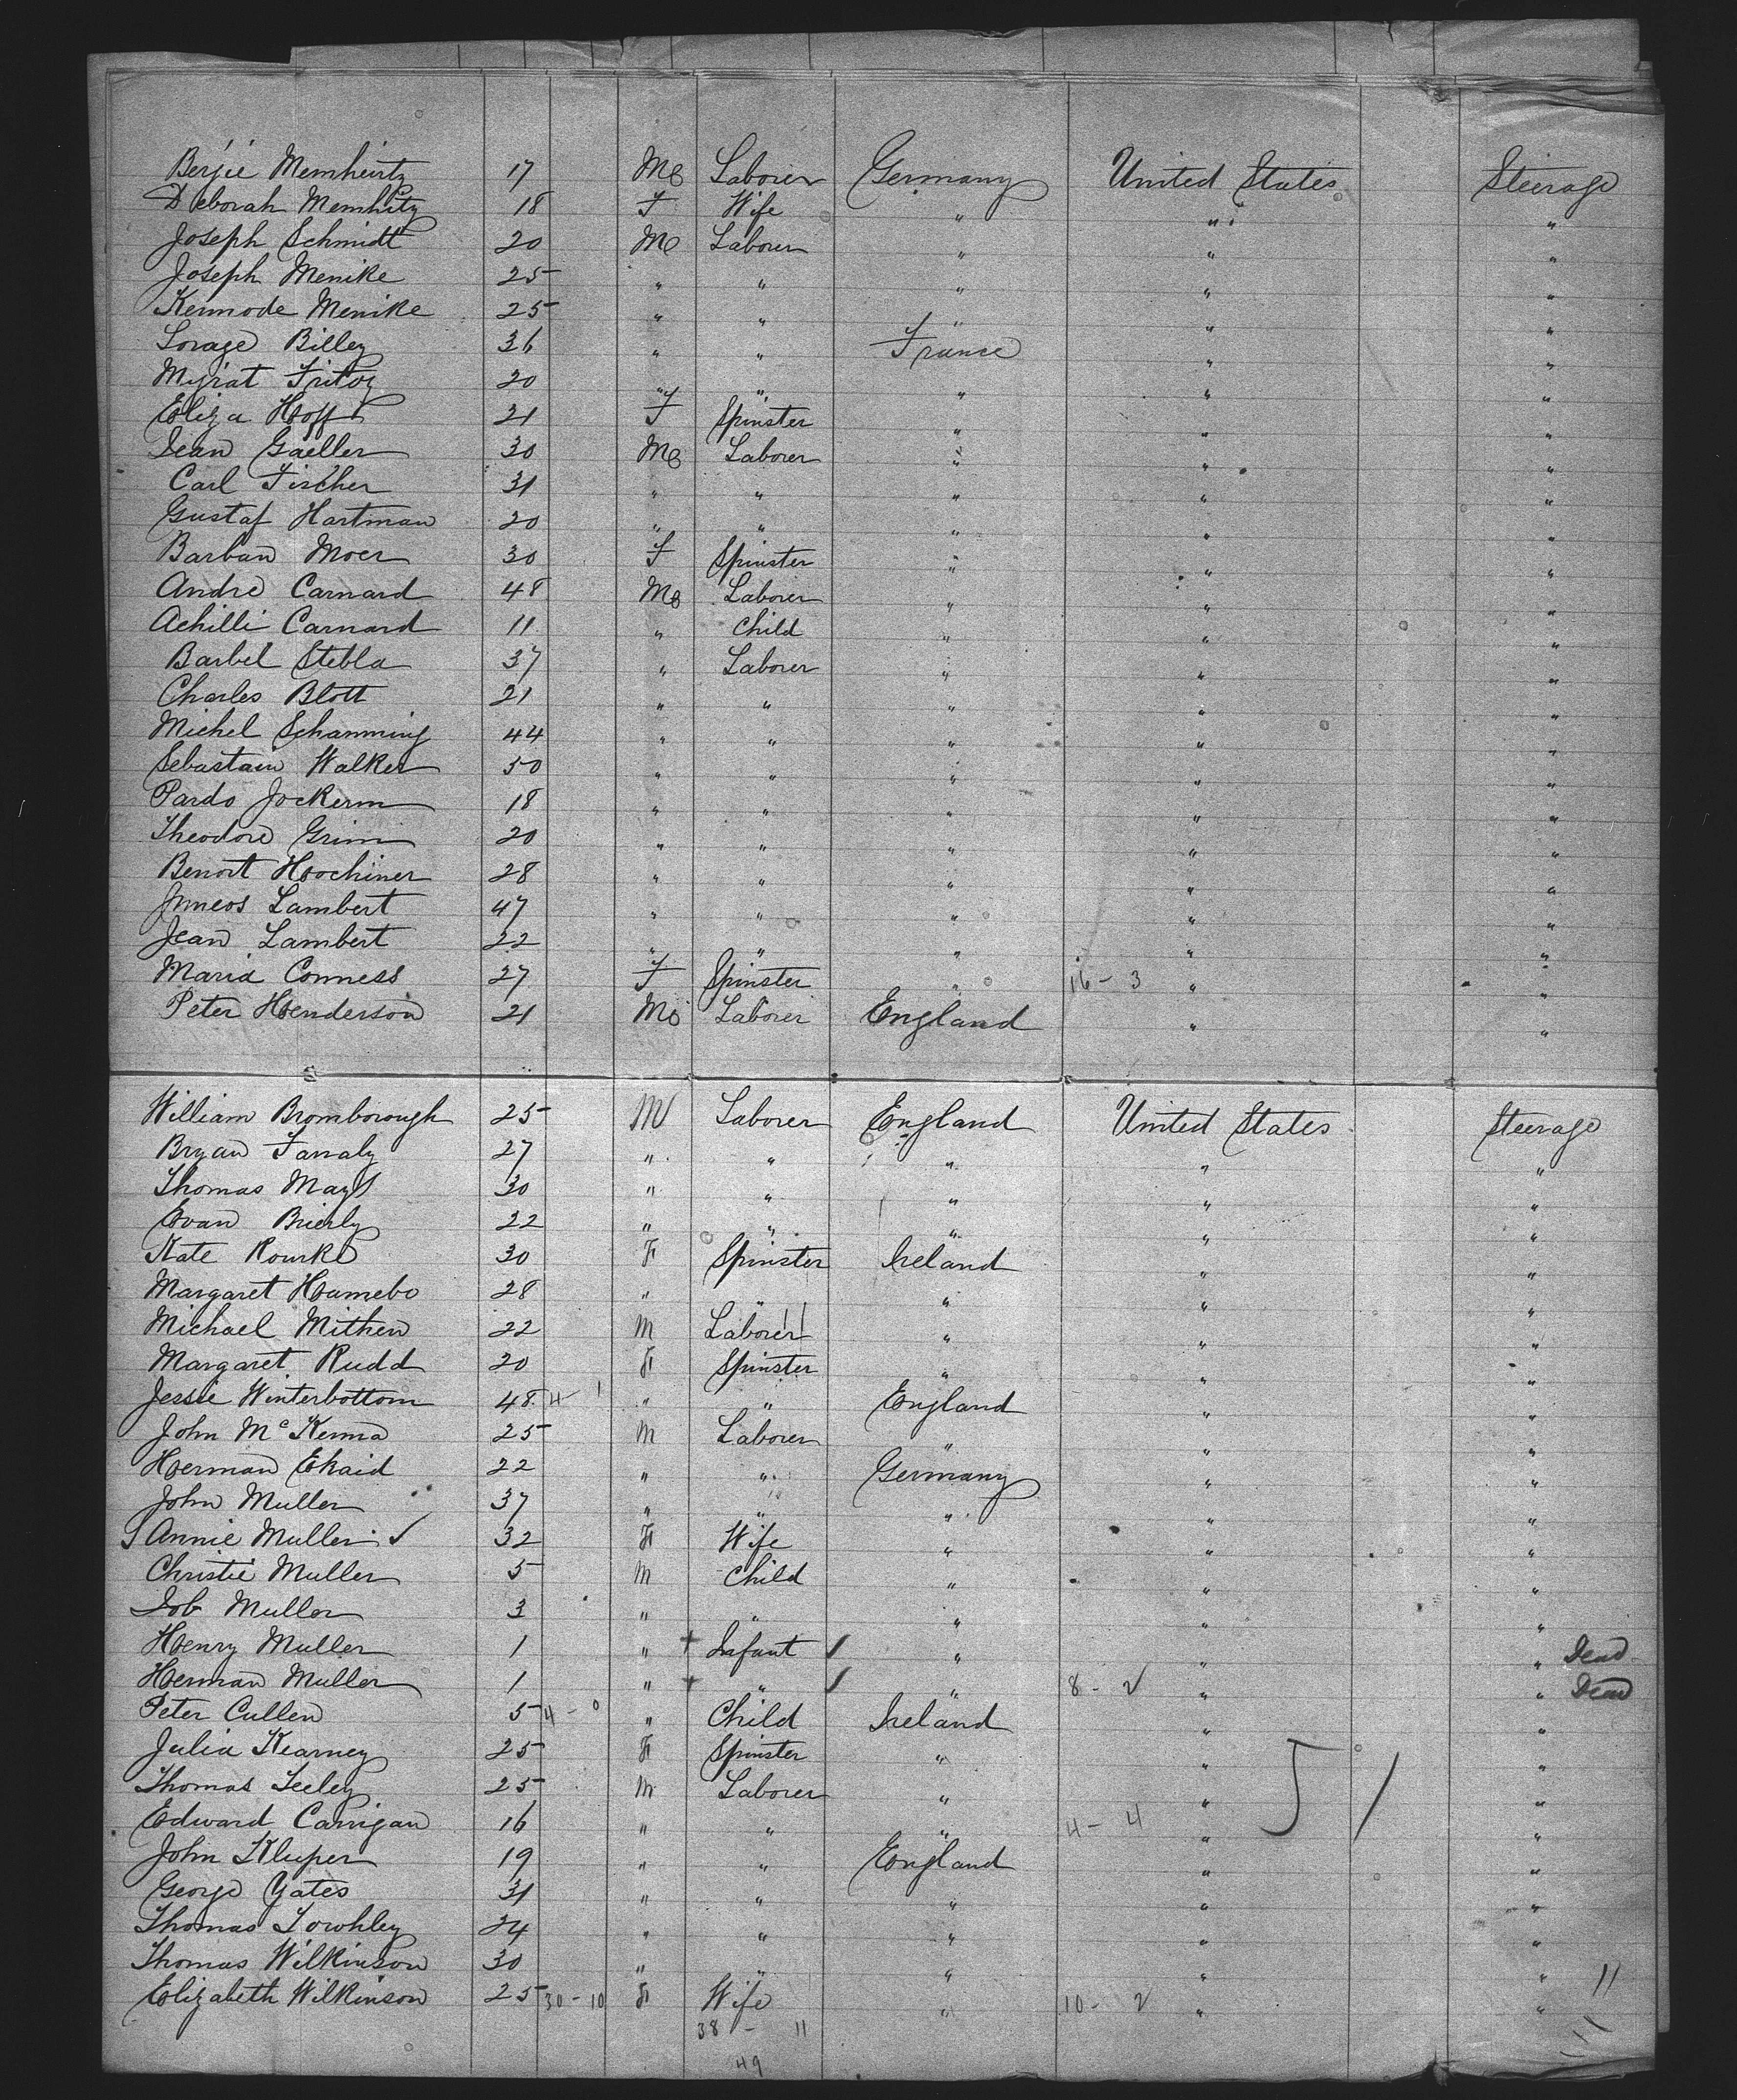 Berjie Memheirtz 17 M Laborer Germany United States Steerage
Deborah Memhitz 18 F Wife " " "
Joseph Schmidt 20 M Laborer " " "
Joseph Menike 25 " " " " "
Kermode Menike 25 " " " " "
Sorage Billey 36 " " France " "
Myrat Fritoz 20 " " " " "
Eliza Hoff 21 F Spinster " " "
Jean Gaeller 30 M Laborer " " "
Carl Fischer 31 " " " " "
Gustaf Hartman 20 " " " " "
Barban Moer 30 F Spinster " " "
Andre Carnard 48 M Laborer " " "
Achilli Carnard 11 " Child " " "
Barbel Stebla 37 " Laborer " " "
Charles Blott 21 " " " " "
Michel Schamming 44 " " " " "
Sebastain Walker 50 " " " " "
Pardo Jockerm 18 " " " " "
Theodore Grim 20 " " " " "
Benoit Hochiner 28 " " " " "
Lambert 47 " " " " "
Jean Lambert 22 " " " " "
Maria Conness 27 F Spinster " 16 - 3 " "
Peter Henderson 21 M Laborer England " "
William Bromborough 25 M Laborer England United States Steerage
Bryan Farraly 27 " " " " "
Thomas Mays 30 " " " " "
Evan Brierly 22 " " " " "
Kate Rourke 30 F Spinster Ireland " "
Margaret Hamebo 28 " " " " "
Michael Mithen 22 M Laborer " " "
Margaret Rudd 20 F Spinster " " "
Jessie Winterbottom 48 4 - 1 " " England " "
John McKenna 25 M Laborer " " "
Herman Ekaid 22 " " Germany " "
John Muller 37 " " " " "
Annie Muller ✓ 32 F Wife " " "
Christie Muller 5 M Child " " "
Job Muller 3 " " " " "
Henry Muller 1 " + Infant / " " " Dead
Herman Muller 1 " + " / " 8 - 2 " " Dead
Peter Cullen 5 4 - 0 " Child Ireland " "
Julia Kearney 25 F Spinster " " "
Thomas Seeley 25 M Laborer " " 51 "
Edward Carrigan 16 " " " 4 - 4 " "
John Kluper 19 " " England " "
George Yates 31 " " " " "
Thomas Towhley 24 " " " " "
Thomas Wilkinson 30 " " " " " 11
Elizabeth Wilkinson 25 30 - 10 F Wife " 10 - 2 " "
38 - 11
49